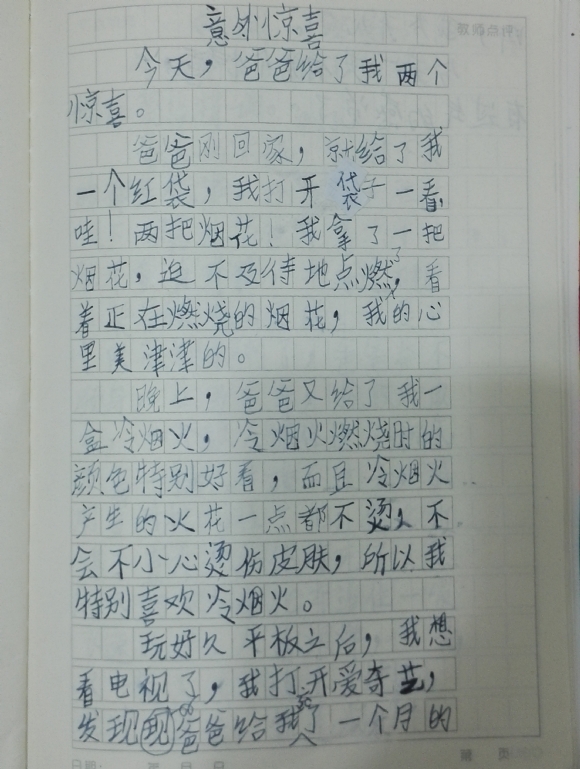 意外惊喜
今天，爸爸给了我两个
惊喜。
爸爸刚回家，就给了我
一个红袋，我打开袋子一看，
哇！两把烟花！我拿了一把
烟花，迫不及待地点燃了，看
着正在燃烧的烟花，我的心
里美津津的。
晚上，爸爸又给了我一
盒冷烟火，冷烟火燃烧时的
颜色特别好看，而且冷烟火
产生的火花一点都不烫人不
会不小心烫伤皮肤，所以我
特别喜欢冷烟火。
玩好久平板之后，我想
看电视了，我打开爱奇艺，
发现爸爸给我了一个月的